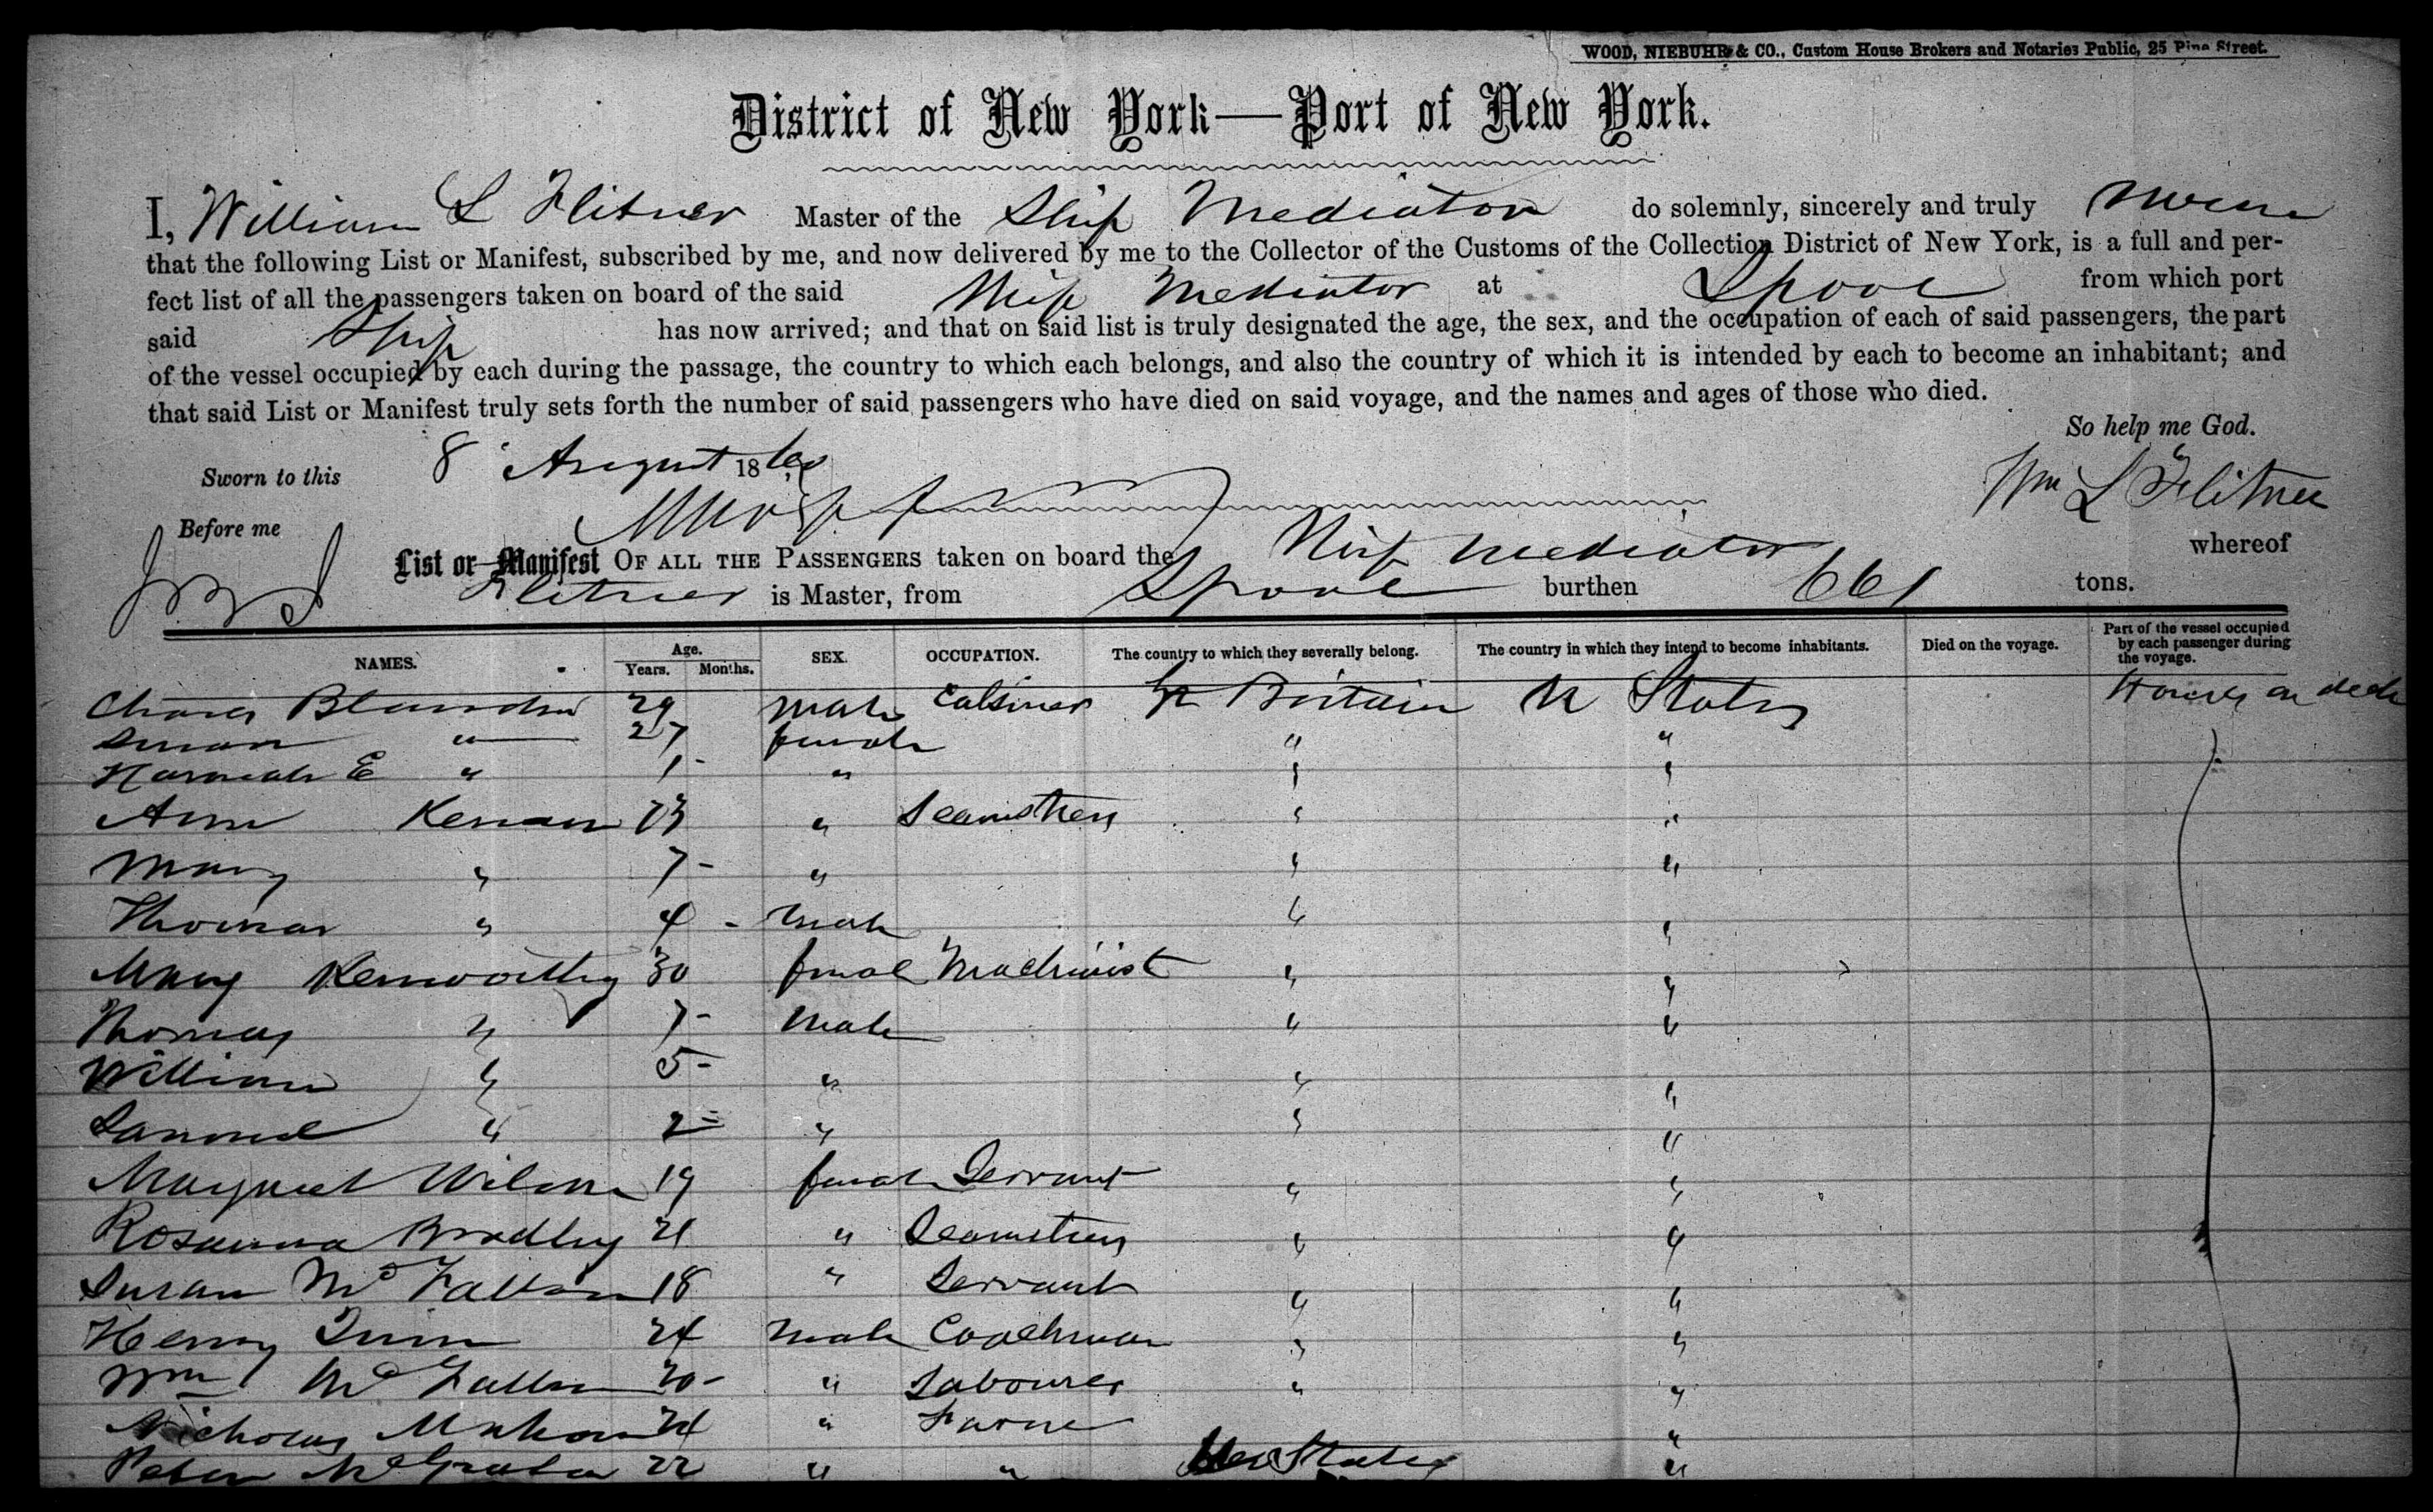 WOOD, NIEBUHR & CO., Custom House Brokers and Notaries Public, 25 Pine Street.
District of New York—Port of New York.
I, William L Flitner Master of the Ship Mediator do solemnly, sincerely and truly swear
that the following List or Manifest, subscribed by me, and now delivered by me to the Collector of the Customs of the Collection District of New York, is a full and per-
fect list of all the passengers taken on board of the said Ship Mediator at Lpool from which port
said Ship has now arrived; and that on said list is truly designated the age, the sex, and the occupation of each of said passengers, the part
of the vessel occupied by each during the passage, the country to which each belongs, and also the country of which it is intended by each to become an inhabitant; and
that said List or Manifest truly sets forth the number of said passengers who have died on said voyage, and the names and ages of those who died.
So help me God.
Sworn to this 8 August 1860
Wm L Flitner
Before me
List or Manifest OF ALL THE PASSENGERS taken on board the Ship Mediator whereof
Flitner is Master, from Lpool burthen 661 tons.
NAMES. Age. Years. Months. SEX. OCCUPATION. The country to which they severally belong. The country in which they intend to become inhabitants. Died on the voyage. Part of the vessel occupied by each passenger during the voyage.
Charles 29 male Gr Britain U States House on deck
Susan " 27 female " "
Hannah E " 1 - " " "
Ann Kernan 23 " Seamstress " "
Mary " 7 - " " "
Thomas " 4 - male " "
Mary Kenworthy 30 femal Machinist " "
Thomas " 7 - male " "
William " 5 - " " "
Samuel " 2 - " " "
Margaret Wilson 19 female Servant " "
Rosanna Bradley 21 " Seamstress " "
Susan Mc Fallon 18 " Servant " "
Henry Quinn 24 male Coachman " "
Wm Mc Fallon 30 - " Labourer " "
Nicholas Mahon 24 " Farmer "
Peter 22 " " States "